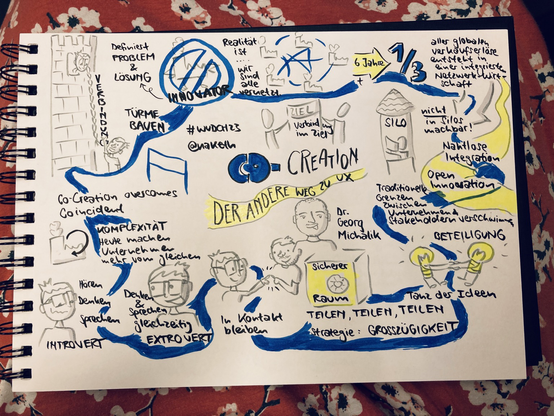 Definiert
PROBLEM
& LÖSUNG
INNOVATOR
Realität
ist
...
wir
sind
alle
vernetzt
6 Jahre
1/3
aller globalen
Verkaufserlöse
entsteht in
einer integrierten
Netzwerkwirt-
schaft
VERBINDUNG
TÜRME
BAUEN
#WUDCH23
@nakeln
ZIEL
Verbind
im Ziel
SILO
nicht
in Silos
machbar!
Nahtlose
Integration
Open
Innovation
CO-CREATION
DER ANDERE WEG ZU UX
Co-Creation overcomes
Coincident
KOMPLEXITÄT
Heute machen
Unternehmen
mehr vom gleichen
Traditionelle
Grenzen
zwischen
Unternehmen &
Stakeholdern verschwimmen
Dr.
Georg
Michalik
BETEILIGUNG
Hören
Denken
Sprechen
INTROVERT
Denken
&
Sprechen
gleichzeitig
EXTROVERT
In Kontakt
bleiben
Sicherer
RAUM
Tanz der Ideen
TEILEN, TEILEN, TEILEN
Strategie: GROSSZÜGIGKEIT